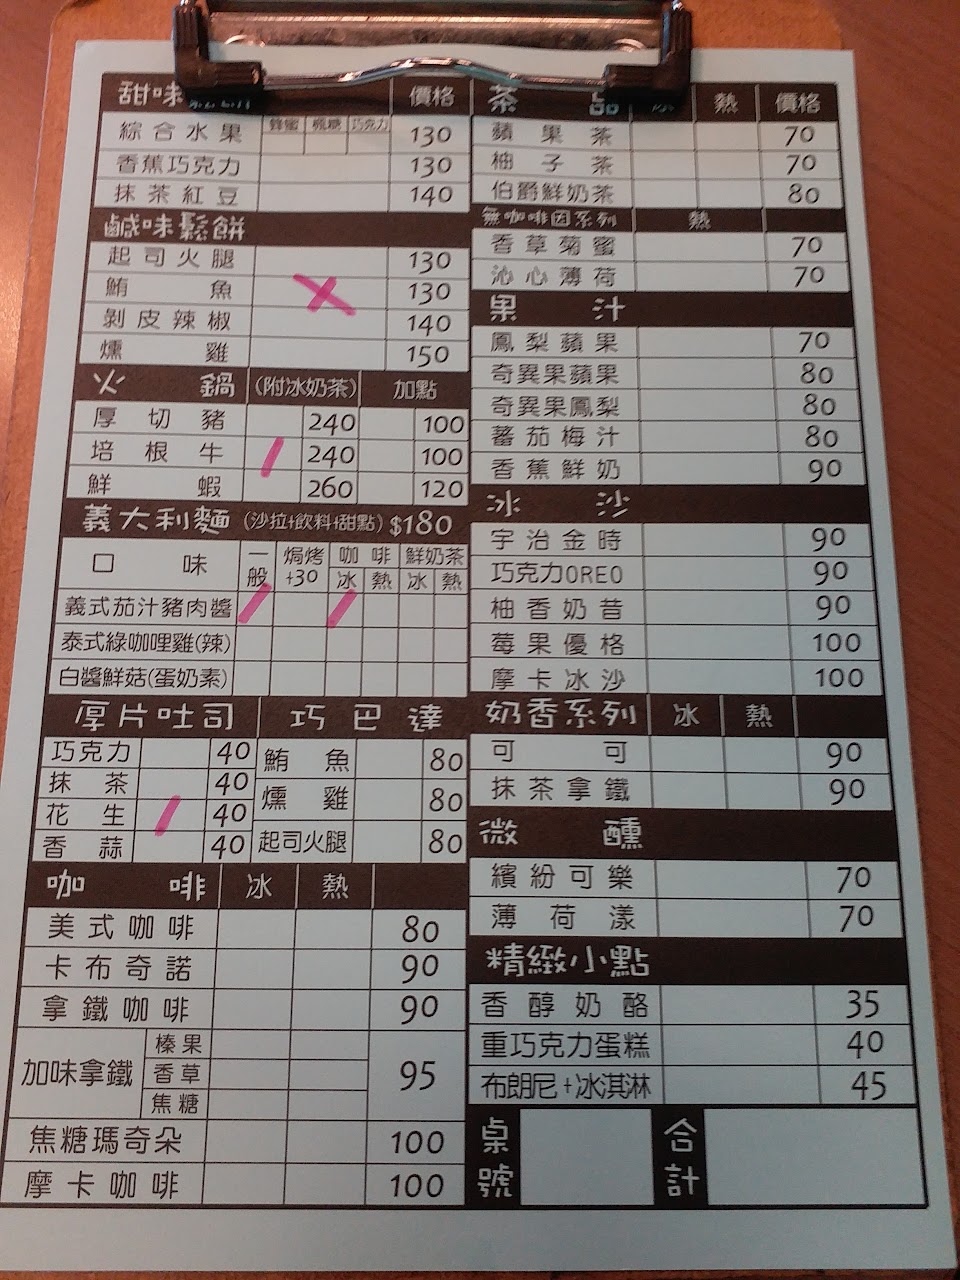 甜味鬆餅 價格
蜂蜜 楓糖 巧克力
綜合水果 130
香蕉巧克力 130
抹茶紅豆 140
鹹味鬆餅
起司火腿 130
鮪魚 130
剝皮辣椒 140
燻雞 150
火鍋 (附冰奶茶) 加點
厚切豬 240 100
培根牛 240 100
鮮蝦 260 120
義大利麵 (沙拉+飲料+甜點) $180
口味 一般 焗烤+30 咖啡 鮮奶茶
冰 熱 冰 熱
義式茄汁豬肉醬
泰式綠咖哩雞(辣)
白醬鮮菇(蛋奶素)
厚片吐司
巧克力 40
抹茶 40
花生 40
香蒜 40
巧巴達
鮪魚 80
燻雞 80
起司火腿 80
咖啡 冰 熱
美式咖啡 80
卡布奇諾 90
拿鐵咖啡 90
加味拿鐵 榛果 香草 焦糖 95
焦糖瑪奇朵 100
摩卡咖啡 100
茶品 冰 熱 價格
蘋果茶 70
柚子茶 70
伯爵鮮奶茶 80
無咖啡因系列 熱
香草菊蜜 70
沁心薄荷 70
果汁
鳳梨蘋果 70
奇異果蘋果 80
奇異果鳳梨 80
蕃茄梅汁 80
香蕉鮮奶 90
冰沙
宇治金時 90
巧克力OREO 90
柚香奶昔 90
莓果優格 100
摩卡冰沙 100
奶香系列 冰 熱
可可 90
抹茶拿鐵 90
微醺
繽紛可樂 70
薄荷漾 70
精緻小點
香醇奶酪 35
重巧克力蛋糕 40
布朗尼+冰淇淋 45
桌號 合計